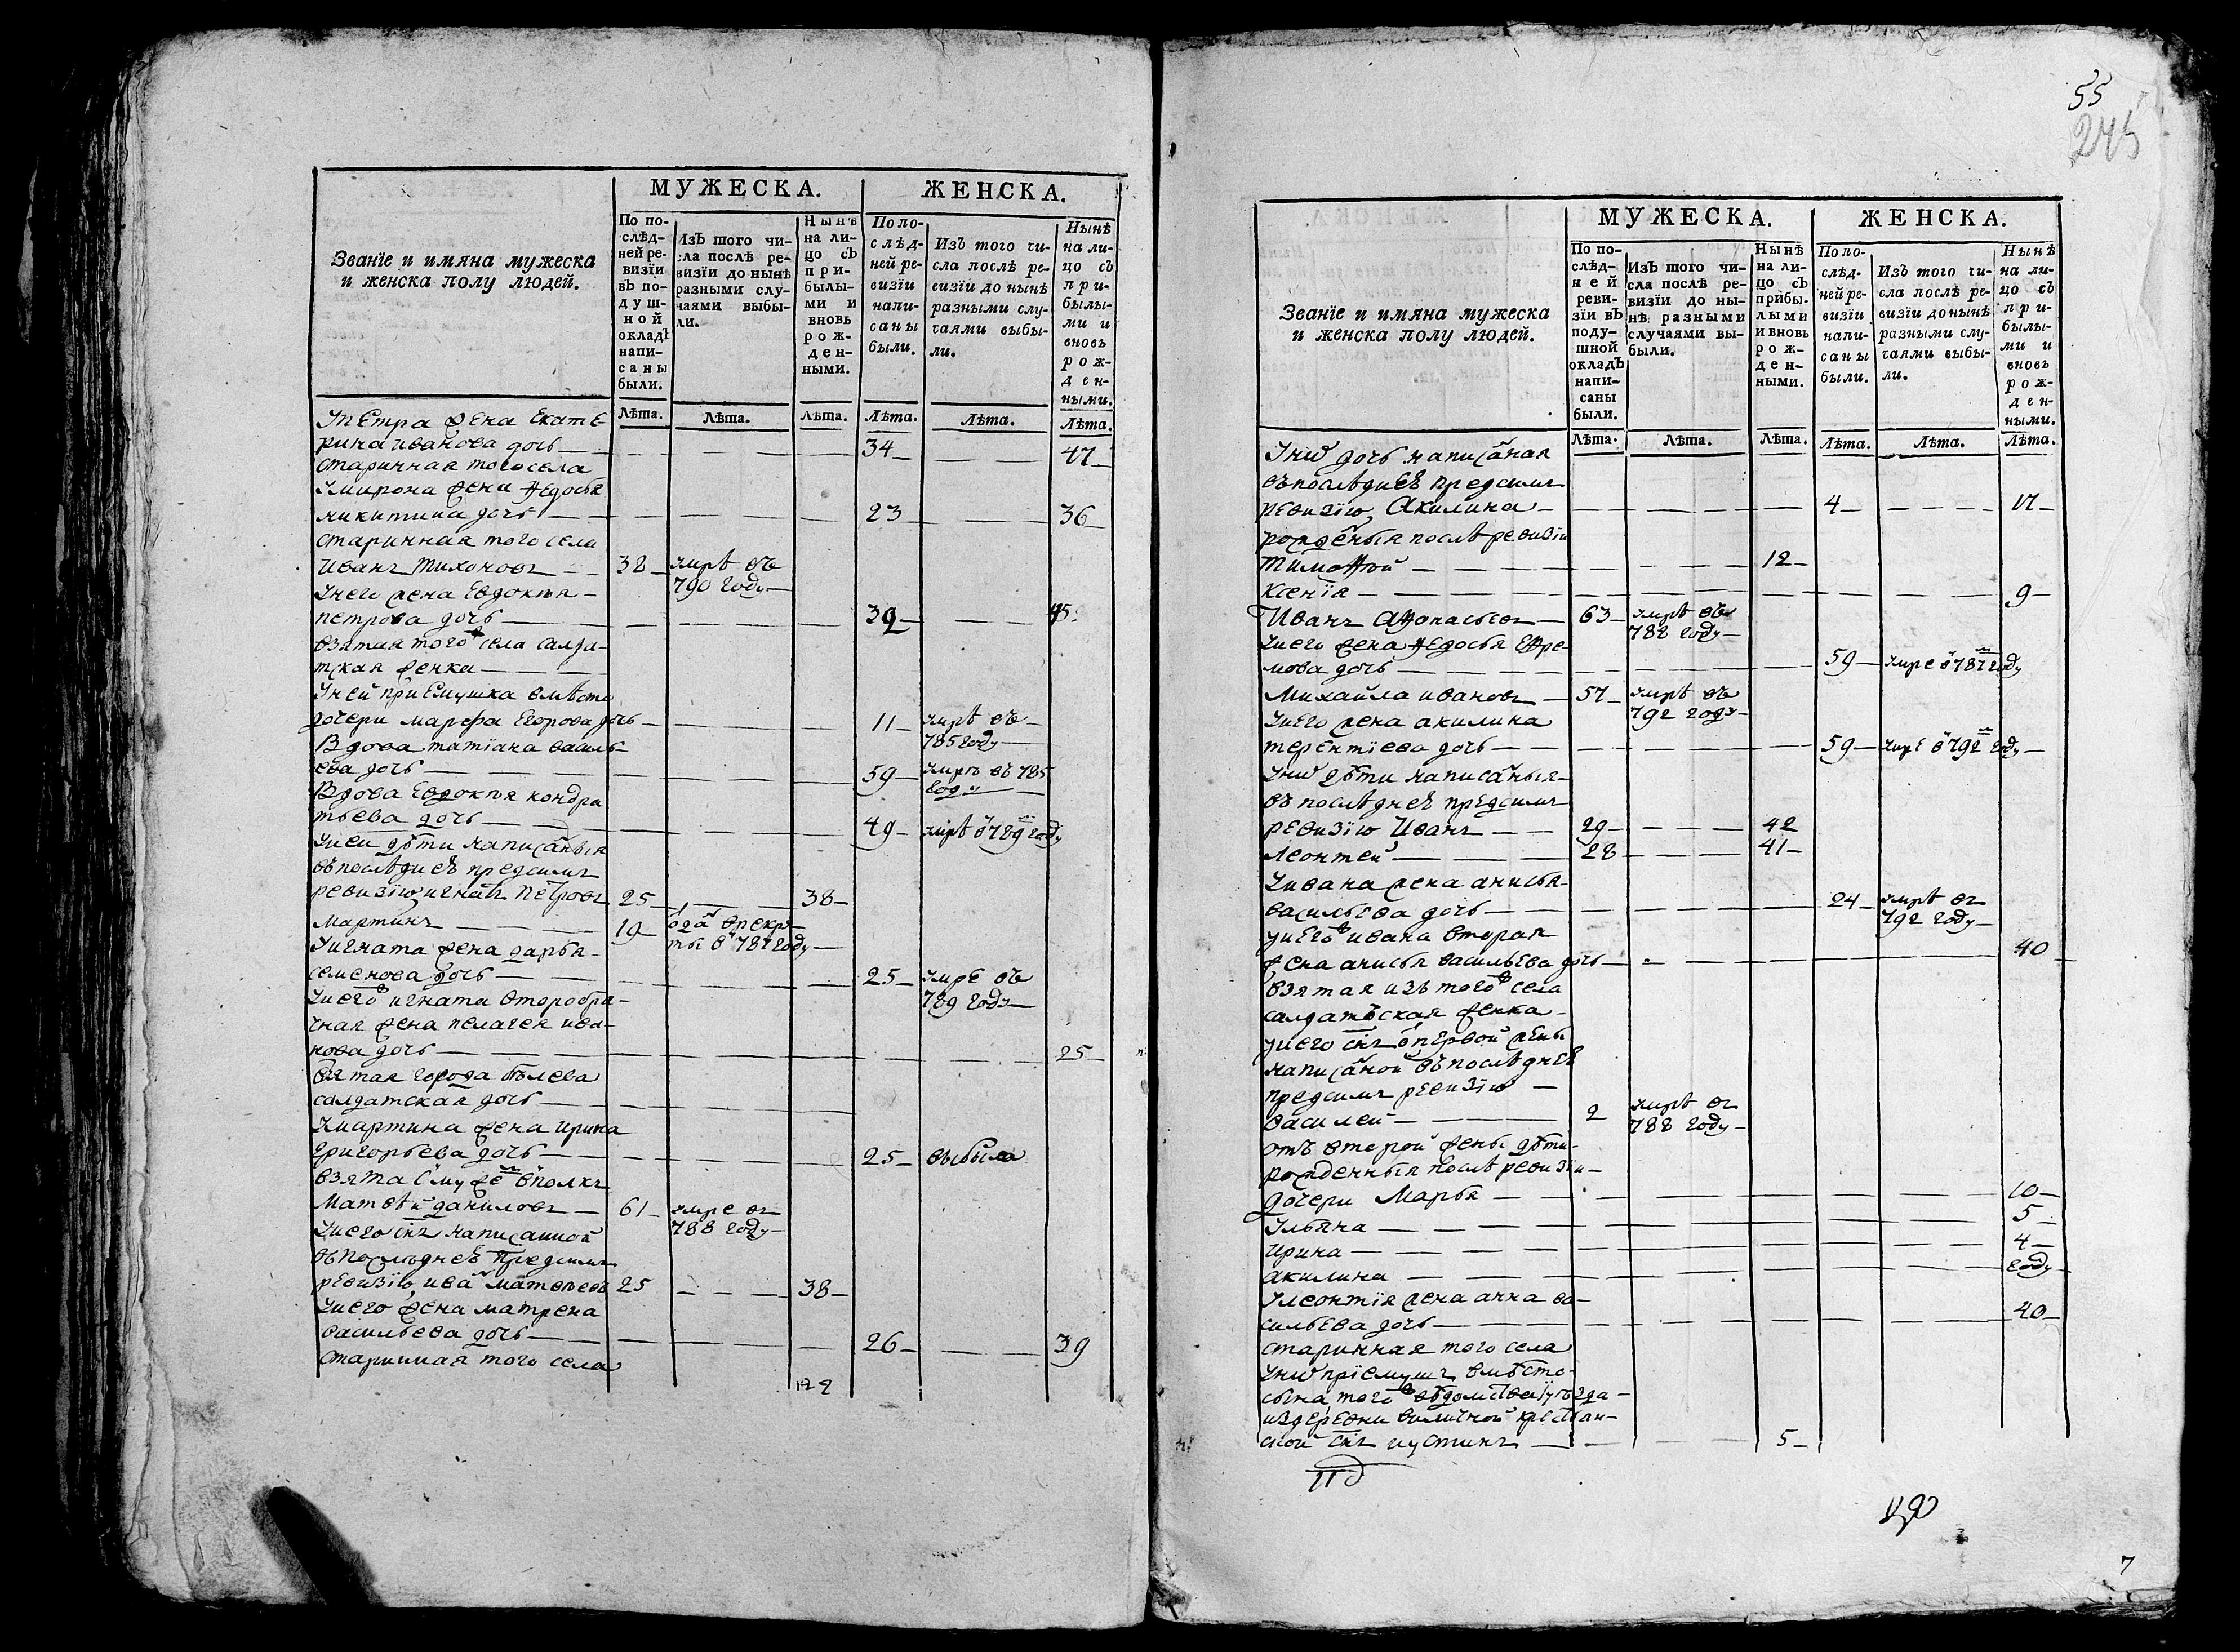 МУЖЕСКА. ЖЕНСКА.
Званїе и имяна мужеска и женска полу людей.
По по-
слѣд-
ней ре-
визїи
въ по-
душ-
ной
окладъ
напи-
саны
были.
Изъ того чи-
сла послѣ ре-
визїи до нынѣ
разными слу-
чаями выбы-
ли.
Нынѣ
на ли-
цо съ
при-
былы-
ми и
вновь
рож-
ден-
ными.
По по-
слѣд-
ней ре-
визїи
напи-
саны
были.
Изъ того чи-
сла послѣ ре-
визїи до нынѣ
разными слу-
чаями выбы-
ли.
Нынѣ
на ли-
цо съ
при-
былы-
ми и
вновь
рож-
ден-
ными.
Лѣта. Лѣта. Лѣта. Лѣта. Лѣта. Лѣта.
У петра жена Екате
рина иванова дочь 34 47
старинная того села
Умирона жена Ѳедосья
никитина дочь 23 36
старинная того села
Иванъ Тихоновъ 38 умрѣ въ 790 году
Унего жена Евдокѣя
петрова дочь 32
взятая того ж села салда-
тская женка
Уней приемушка вмѣсто
дочери марѳа Егорова дочь 11 умрѣ въ 785 году
Вдова татїана василь
ева дочь 59 умрѣ въ 785 году
Вдова Евдокѣя кондра
тьева дочь 49 умрѣ в 789 году
Уней дѣти написаныя
въпоследнеѣ предсимъ
ревизїю игнатъ Петровъ 25 38
Мартинъ 19 одан врекру-
ты в 787 году
Уигната жена дарья
семенова дочь 25 умре въ 789 году
Унего ж игната второбра-
чная жена пелагея ива-
нова дочь 25
взятая города бѣлева
салдатская дочь
Умартина жена Ирина
григорьева дочь 25 выбыла
взята смужем вполкъ
Матвѣй даниловъ 61 умре въ 788 году
Унего снъ написанной
въпослѣднеѣ предсимъ
ревизїю, иван матвѣевъ 25 38
Унего жена матрена
васильева дочь 26 39
старинная того села
122
55
245
МУЖЕСКА. ЖЕНСКА.
Званїе и имяна мужеска и женска полу людей.
По по-
слѣд-
ней
реви-
зїи въ
поду-
шной
окладъ
напи-
саны
были.
Изъ того чи-
сла послѣ ре-
визїи до ны-
нѣ разными
случаями вы-
были.
Нынѣ
на ли-
цо съ
прибы-
лыми
и вновь
рож-
ден-
ными.
По по-
слѣд-
ней ре-
визїи
напи-
саны
были.
Изъ того чи-
сла послѣ ре-
визїи до нынѣ
разными слу-
чаями выбы-
ли.
Нынѣ
на ли-
цо съ
при-
былы-
ми и
вновь
рож-
ден-
ными.
Лѣта. Лѣта. Лѣта. Лѣта. Лѣта. Лѣта.
Уних дочь написаная
въпоследнеѣ предсимъ
ревизїю Акилина 4 17
рожденыя послѣ ревизїи
Тимоѳѣй 12
Ксенїя 9
Иванъ Аѳонасьевъ 63 умрѣ въ 788 году
Унего жена Ѳедосья Еѳре
мова дочь 59 умре в 787 году
Михайла ивановъ 57 умрѣ въ 792 году
Унего жена акилина
терентїева дочь 59 умре в 792 году
Уних дѣти написаныя
въ последнеѣ предсимъ
ревизїю Иванъ 29 42
Леонтей 28 41
Уивана жена анисья
васильева дочь 24 умрѣ въ 792 году
унего ж ивана вторая
жена анисья васильева дочь 40
взятая изъ того ж села
салдатская женка
унего снъ от первой жены
написаной въпоследнеѣ
предсимъ ревизїю
василей 2 умрѣ въ 788 году
отъ второй жены дѣти
рожденныя послѣ ревизїи
дочери Марья 10
Ульяна 5
Ирина 4
акилина году
Улеонтїя жена анна ва-
сильева дочь 40
старинная того села
Уних прїемушъ вмѣсто
сына, того ж вѣдомства уѣзда
издеревни крестьян-
ской снъ иустинъ 5
7